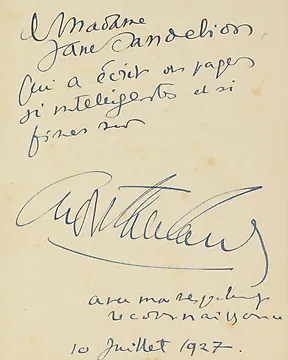 à Madame
Jane Candelion
qui a écrit des pages
si intelligentes et si
fines sur
avec ma
reconnaissance
10 Juillet 1927.